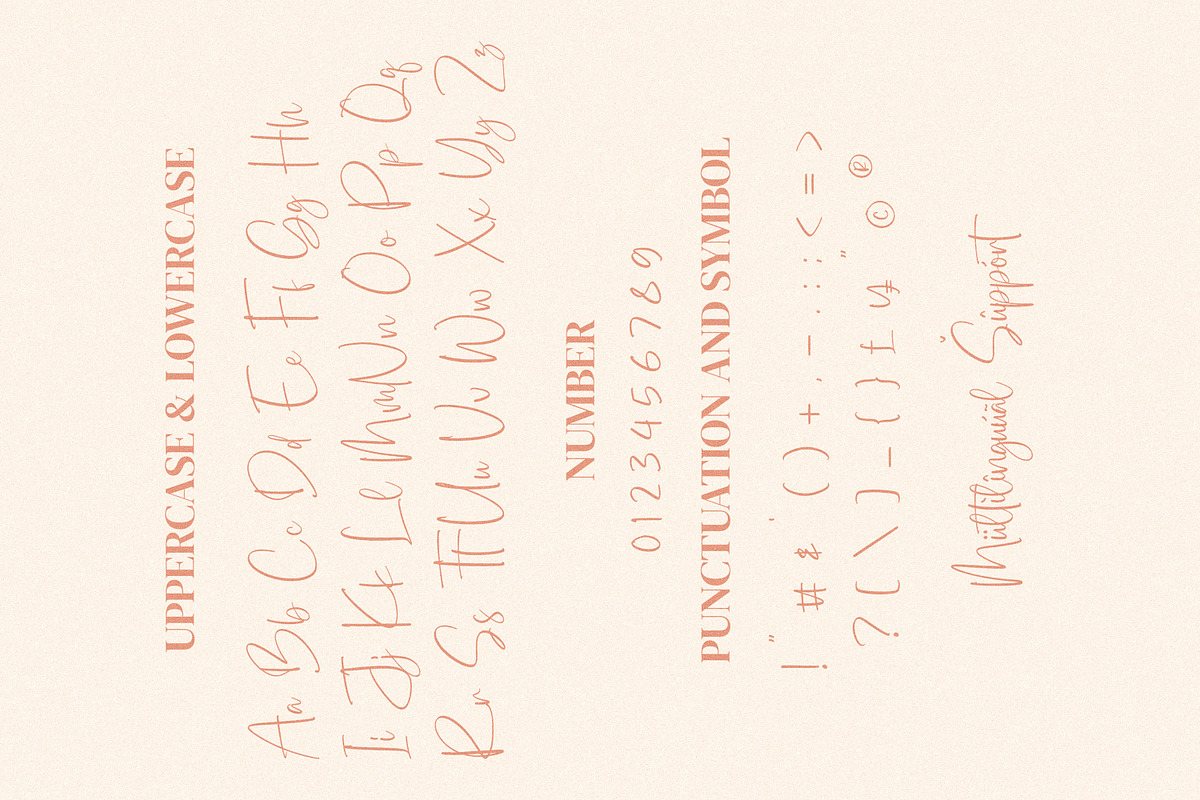 UPPERCASE & LOWERCASE
Aa Bb Cc Dd Ee Ff Gg Hh
Ii Jj Kk Ll Mm Nn Oo Pp Qq
Rr Ss Tt Uu Vv Ww Xx Yy Zz
NUMBER
0 1 2 3 4 5 6 7 8 9
PUNCTUATION AND SYMBOL
! " # & ' ( ) + , - . : ; < = >
? [ \ ] _ { } £ ¥ " © ®
Mültilinguíäl Süppórt